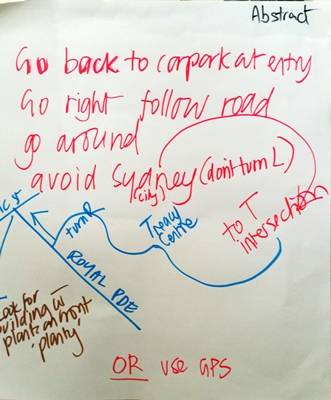 Abstract
Go back to carpark at entry
Go right follow road
go around
avoid Sydney (don't turn L)
(city)
to T
intersection
Treacy
Centre
turn R
ROYAL PDE
Look for
building w
plants on front
'planty'
OR use GPS